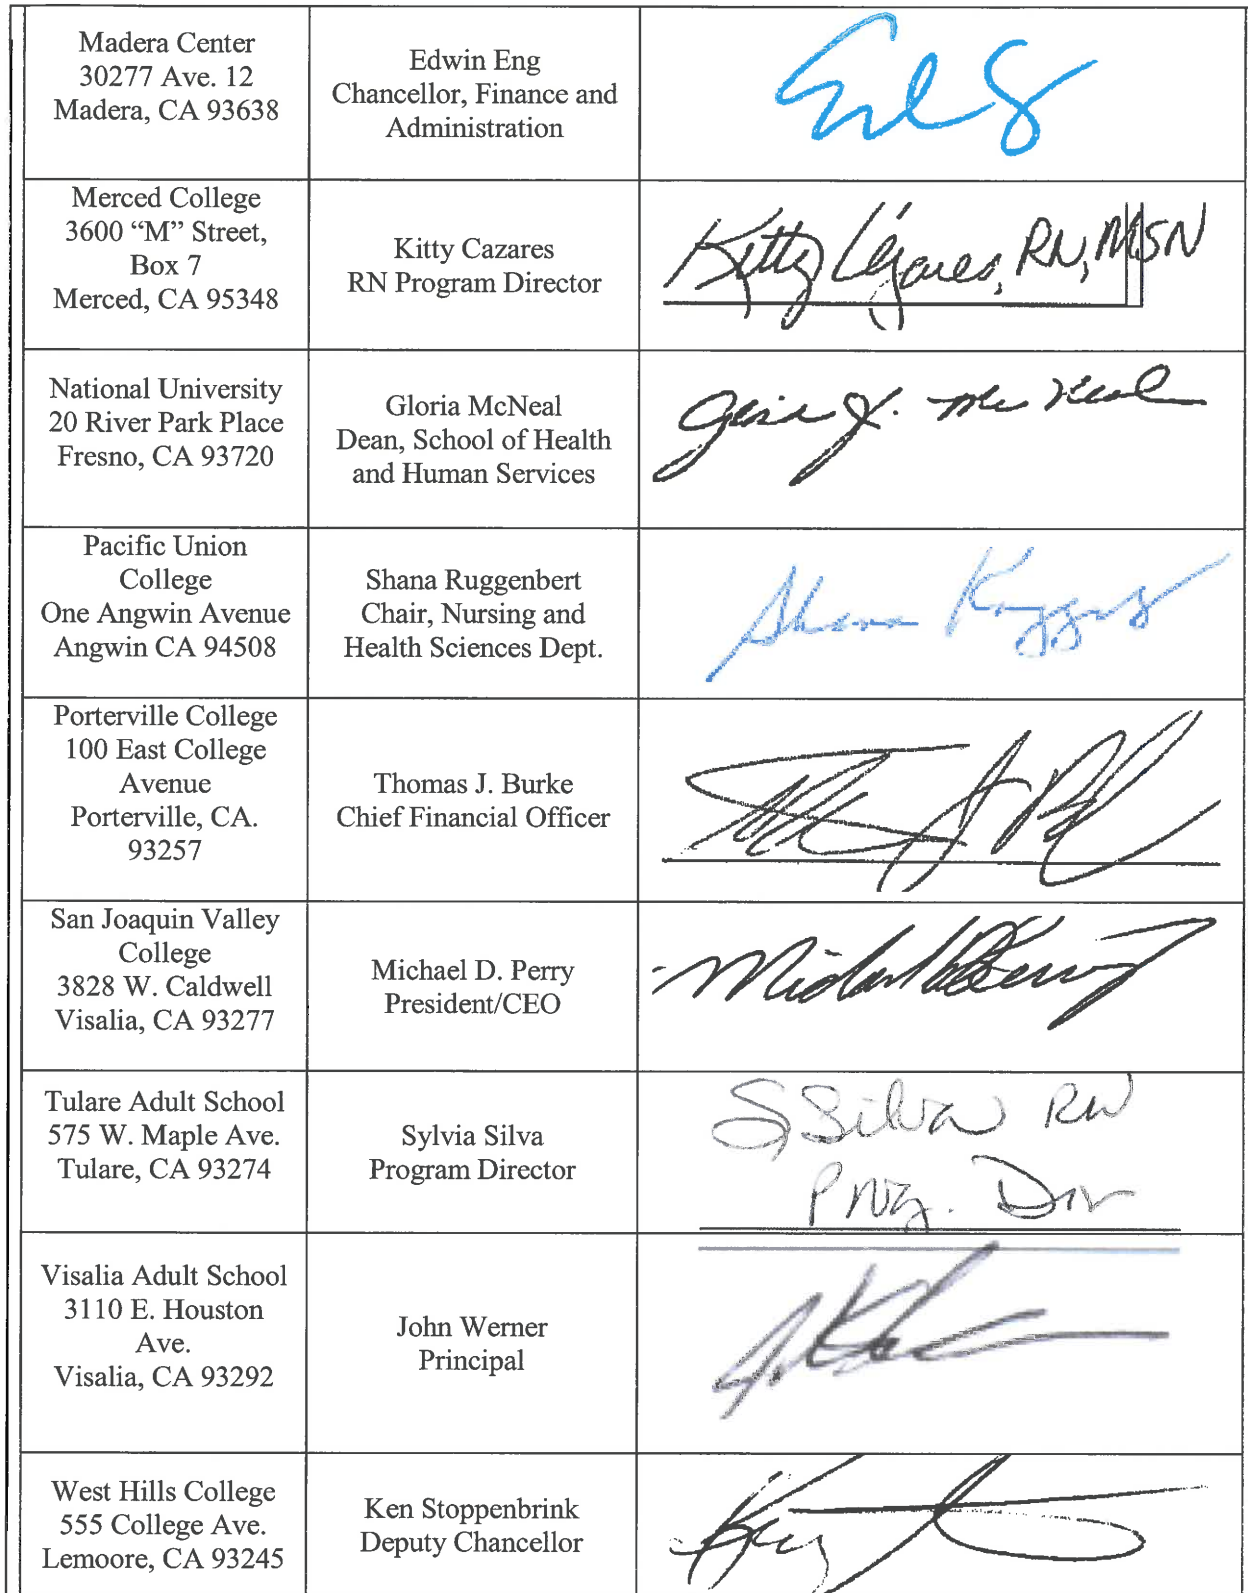 Madera Center
30277 Ave. 12
Madera, CA 93638
Edwin Eng
Chancellor, Finance and
Administration
Merced College
3600 “M” Street,
Box 7
Merced, CA 95348
Kitty Cazares
RN Program Director
Kitty Cazares, RN, MSN
National University
20 River Park Place
Fresno, CA 93720
Gloria McNeal
Dean, School of Health
and Human Services
Gloria J. McNeal
Pacific Union
College
One Angwin Avenue
Angwin CA 94508
Shana Ruggenbert
Chair, Nursing and
Health Sciences Dept.
Shana
Porterville College
100 East College
Avenue
Porterville, CA.
93257
Thomas J. Burke
Chief Financial Officer
San Joaquin Valley
College
3828 W. Caldwell
Visalia, CA 93277
Michael D. Perry
President/CEO
Michael D Perry
Tulare Adult School
575 W. Maple Ave.
Tulare, CA 93274
Sylvia Silva
Program Director
S Silva RN
Prog. Dir
Visalia Adult School
3110 E. Houston
Ave.
Visalia, CA 93292
John Werner
Principal
West Hills College
555 College Ave.
Lemoore, CA 93245
Ken Stoppenbrink
Deputy Chancellor